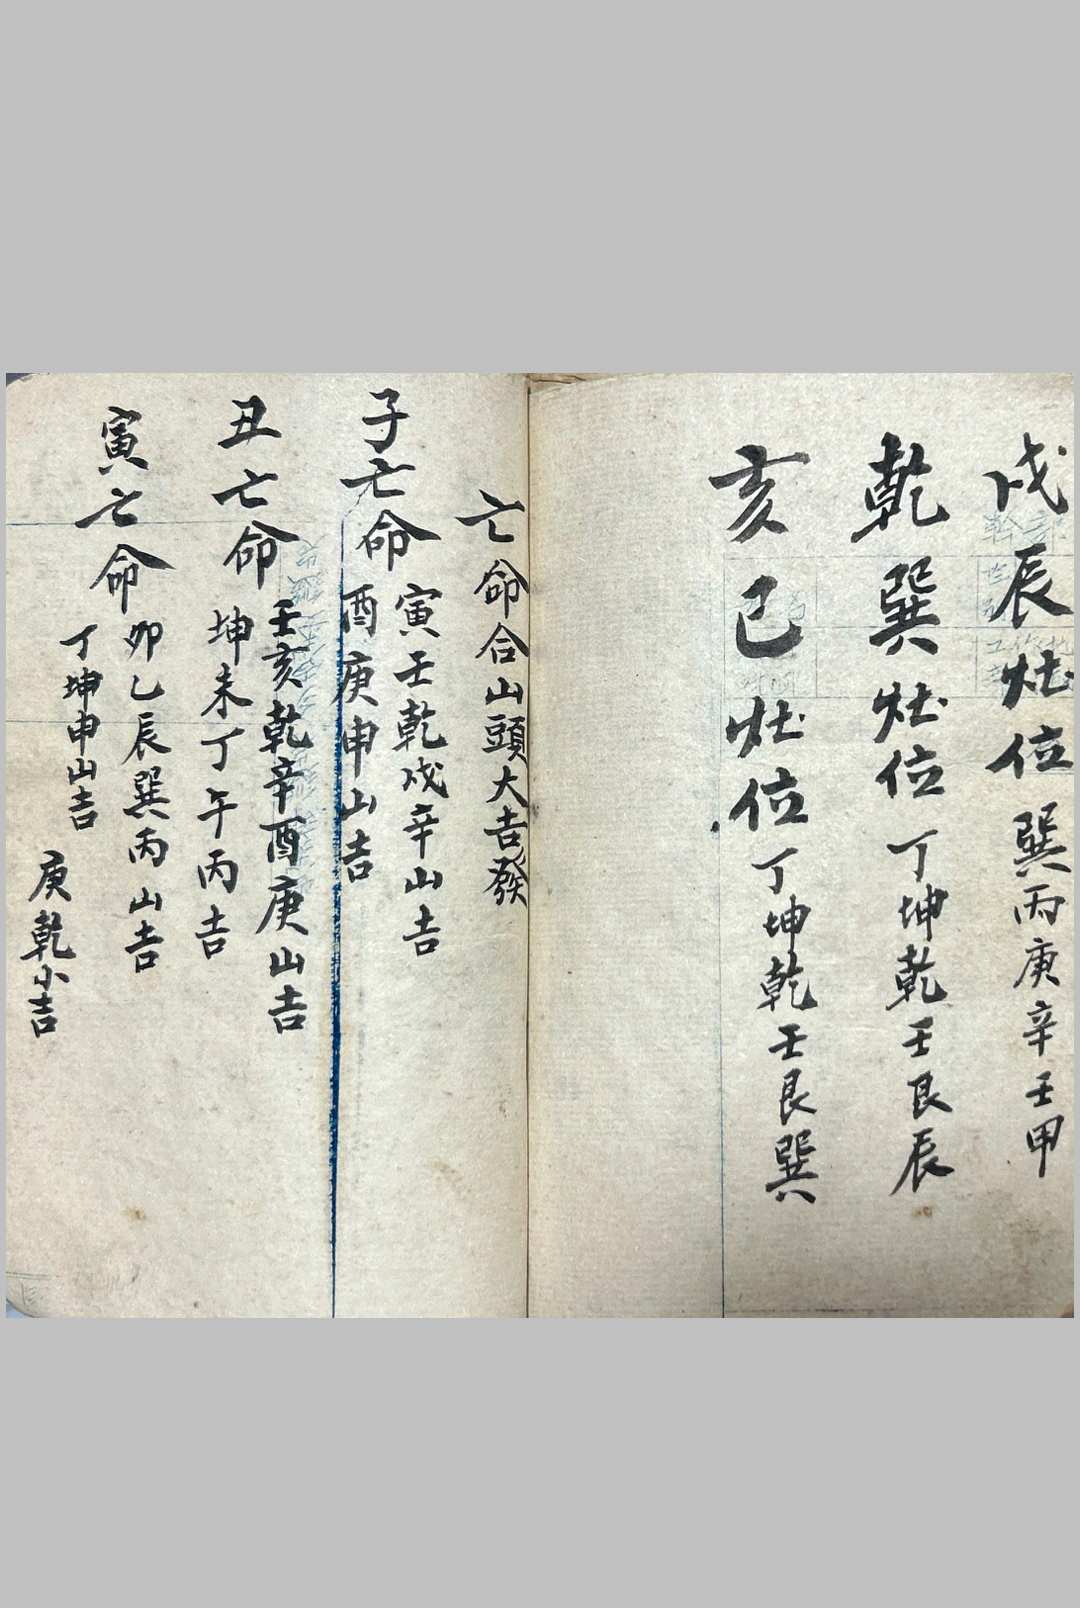 戌辰灶位巽丙庚辛壬甲
乾巽灶位丁坤乾壬艮辰
亥巳灶位丁坤乾壬艮巽
亡命合山頭大吉發
子亡命
寅壬乾戌辛山吉
酉庚申山吉
丑亡命
壬亥乾辛酉庚山吉
坤未丁午丙吉
寅亡命
卯乙辰巽丙山吉
丁坤申山吉
庚乾小吉